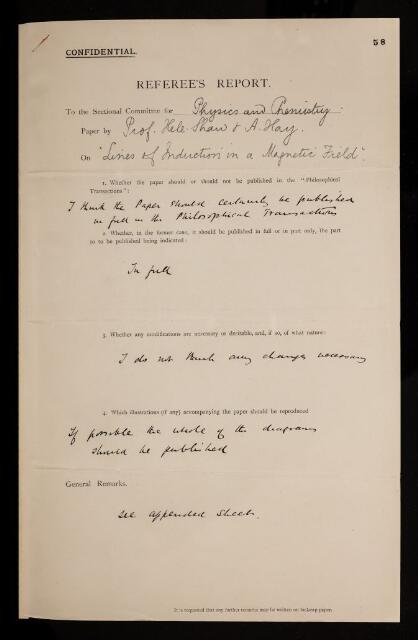 58
CONFIDENTIAL.
REFEREE'S REPORT.
To the Sectional Committee for Physics and Chemistry.
Paper by Prof. Hele-Shaw & A. Hay.
On "Lines of Induction in a Magnetic Field".
1. Whether the paper should or should not be published in the "Philosophical
Transactions":
I think the Paper should certainly be published
in full in the Philosophical Transactions
2. Whether, in the former case, it should be published in full or in part only, the part
so to be published being indicated:
In full
3. Whether any modifications are necessary or desirable, and, if so, of what nature:
I do not think any changes necessary
4. Which illustrations (if any) accompanying the paper should be reproduced
If possible the whole of the diagrams
should be published
General Remarks.
see appended sheet.
It is requested that any further remarks may be written on foolscap paper.